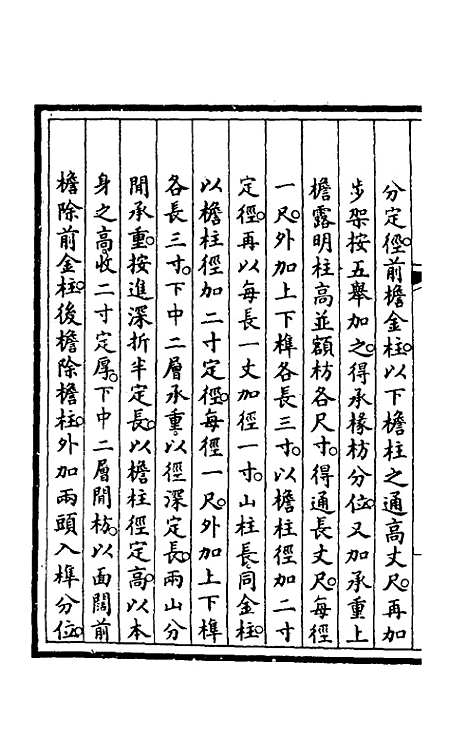 分定徑。前檐金柱。以下檐柱之通高丈尺。再加
步架按五舉加之。得承椽枋分位。又加承重上
檐露明柱高並額枋各尺寸。得通長丈尺。每徑
一尺。外加上下榫各長三寸。以檐柱徑加二寸
定徑。再以每長一丈加徑一寸。山柱長。同金柱。
以檐柱徑加二寸定徑。每徑一尺。外加上下榫
各長三寸。下中二層承重。以徑深定長。兩山分
間承重。按進深折半定長。以檐柱徑定高。以本
身之高收二寸定厚。下中二層間枋。以面闊前
檐除前金柱。後檐除檐柱。外加兩頭入榫分位。